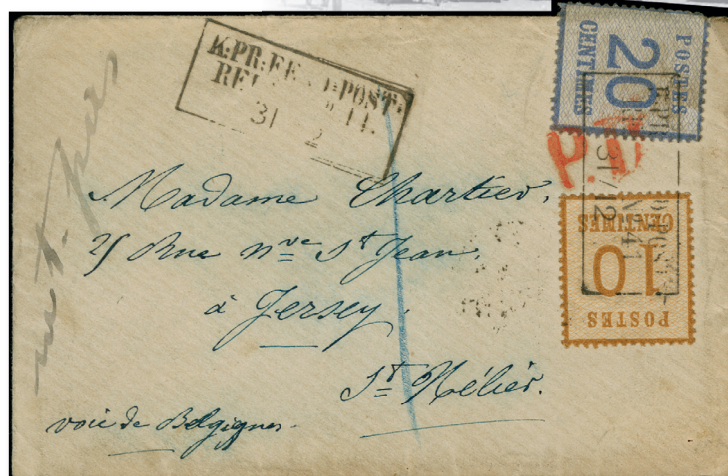 K:PR:FELD-POST.
31 12
POSTES
20
CENTIMES
P.D
31/12
No 41
CENTIMES
10
POSTES
Madame Chartier,
25 Rue nve St Jean,
à Jersey,
St Hélier.
voie de Belgique